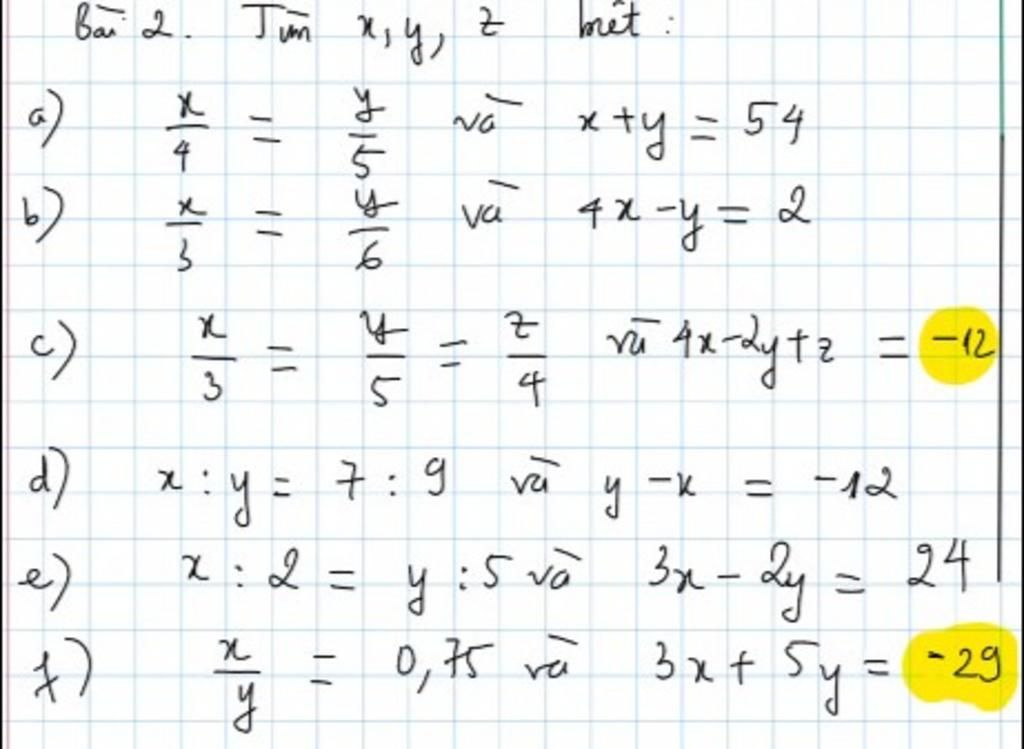 Bài 2. Tìm x, y, z biết :
a) x/4 = y/5 và x+y = 54
b) x/3 = y/6 và 4x-y = 2
c) x/3 = y/5 = z/4 và 4x-2y+z = -12
d) x : y = 7 : 9 và y - x = -12
e) x : 2 = y : 5 và 3x - 2y = 24
f) x/y = 0,75 và 3x + 5y = -29